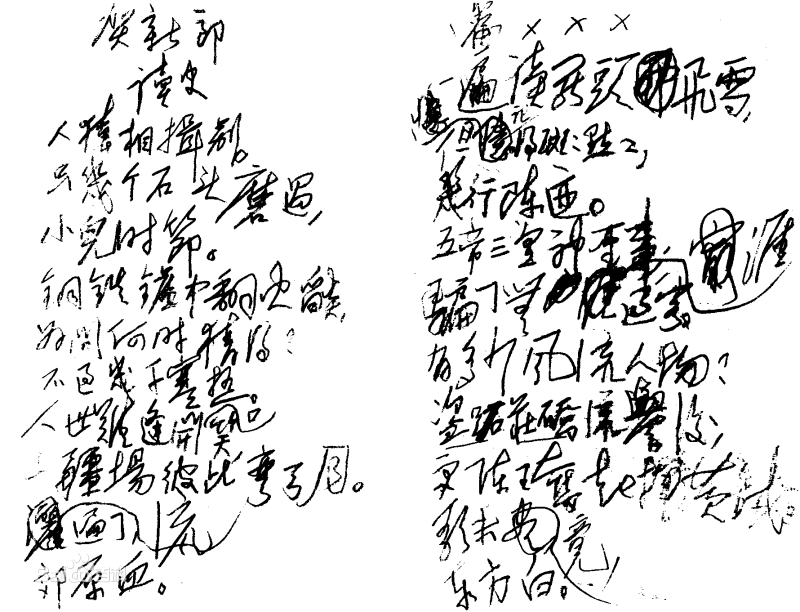 贺新郎
读史
人猿相揖别。
只几个石头磨过，
小儿时节。
铜铁炉中翻火焰，
为问何时猜得？
不过几千寒热。
人世难逢开口笑
疆场彼此弯弓月。
流遍了
郊原血。
×××
一篇读罢头飞雪，
但记得斑斑点点，
几行陈迹。
五帝三皇神圣事，
骗了无涯过客。
有多少风流人物？
盗跖庄屩流誉后，
更陈王奋起挥黄钺。
歌未竟，
东方白。